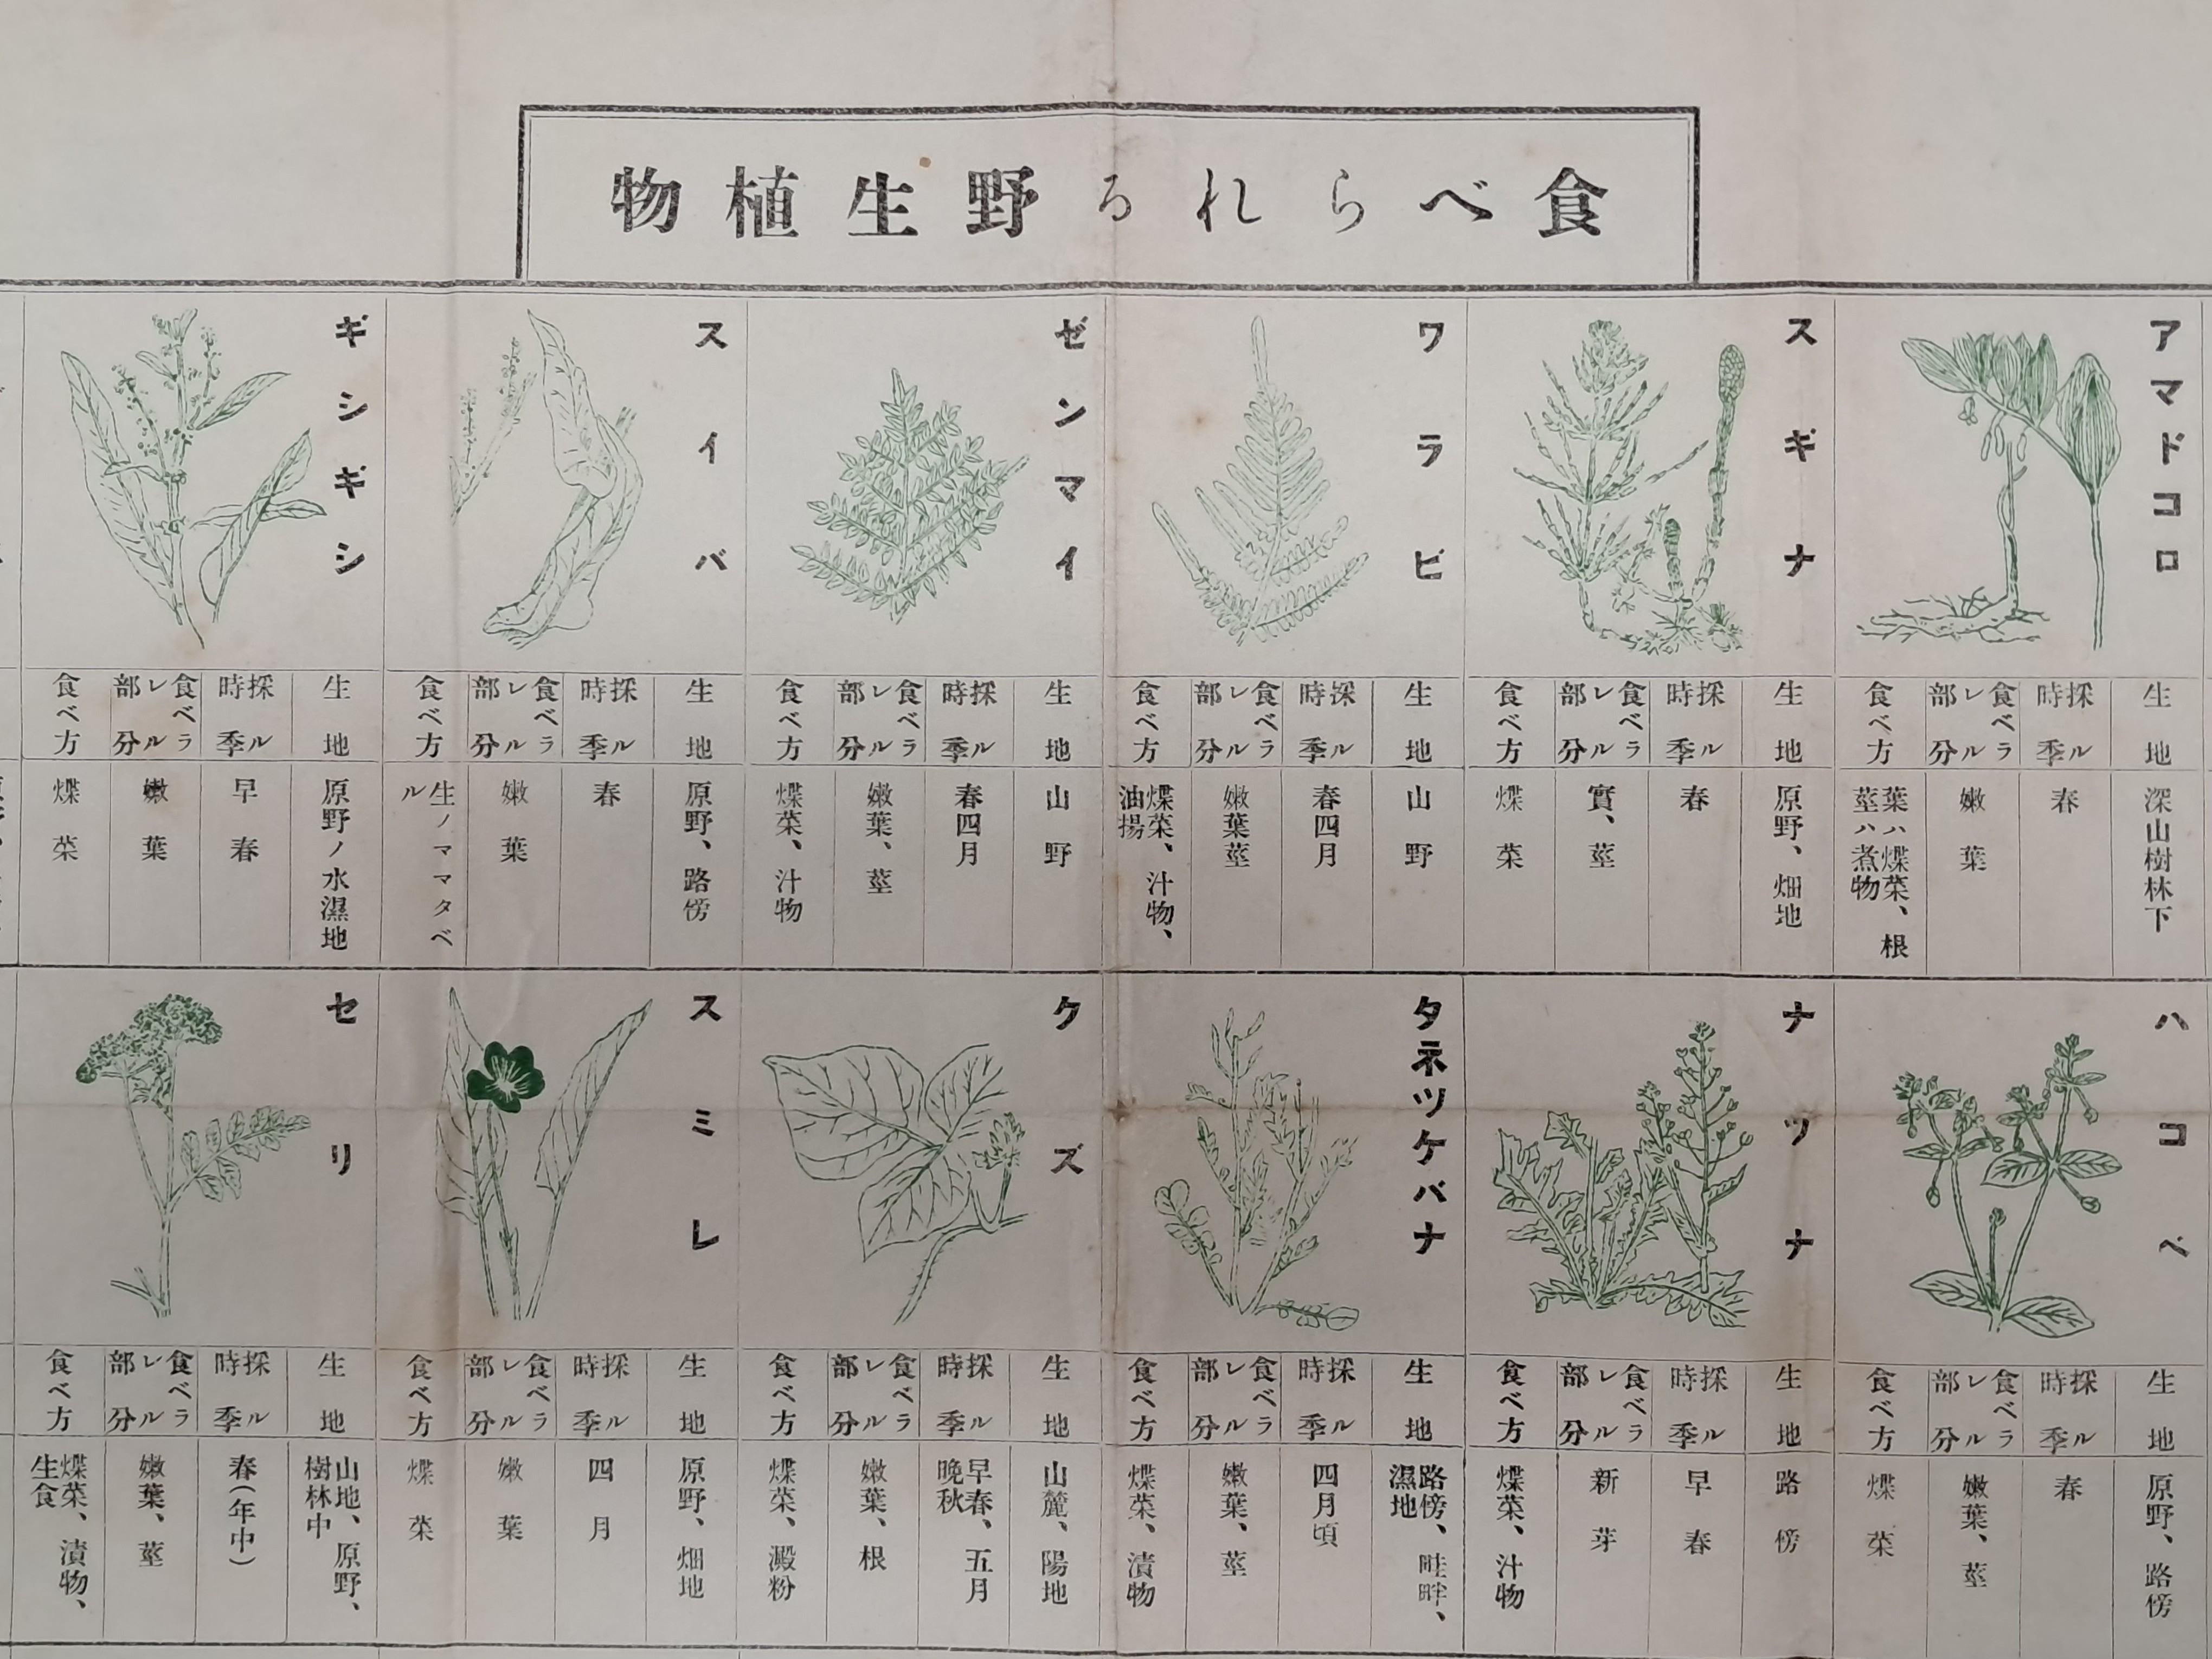 食べられる野生植物
アマドコロ
生地
深山樹林下
採ル時季
春
食べラレル部分
嫩葉
食べ方
葉ハ煠菜、根
莖ハ煮物
スギナ
生地
原野、畑地
採ル時季
春
食べラレル部分
實、莖
食べ方
煠菜
ワラビ
生地
山野
採ル時季
春四月
食べラレル部分
嫩葉莖
食べ方
煠菜、汁物、
油揚
ゼンマイ
生地
山野
採ル時季
春四月
食べラレル部分
嫩葉、莖
食べ方
煠菜、汁物
スイバ
生地
原野、路傍
採ル時季
春
食べラレル部分
嫩葉
食べ方
生ノママタベ
ル
ギシギシ
生地
原野ノ水濕地
採ル時季
早春
食べラレル部分
嫩葉
食べ方
煠菜
ハコベ
生地
原野、路傍
採ル時季
春
食べラレル部分
嫩葉、莖
食べ方
煠菜
ナツナ
生地
路傍
採ル時季
早春
食べラレル部分
新芽
食べ方
煠菜、汁物
タネツケバナ
生地
路傍、畦畔、
濕地
採ル時季
四月頃
食べラレル部分
嫩葉、莖
食べ方
煠菜、漬物
クズ
生地
山麓、陽地
採ル時季
早春、五月
晩秋
食べラレル部分
嫩葉、根
食べ方
煠菜、澱粉
スミレ
生地
原野、畑地
採ル時季
四月
食べラレル部分
嫩葉
食べ方
煠菜
セリ
生地
山地、原野、
樹林中
採ル時季
春(年中)
食べラレル部分
嫩葉、莖
食べ方
煠菜、漬物、
生食